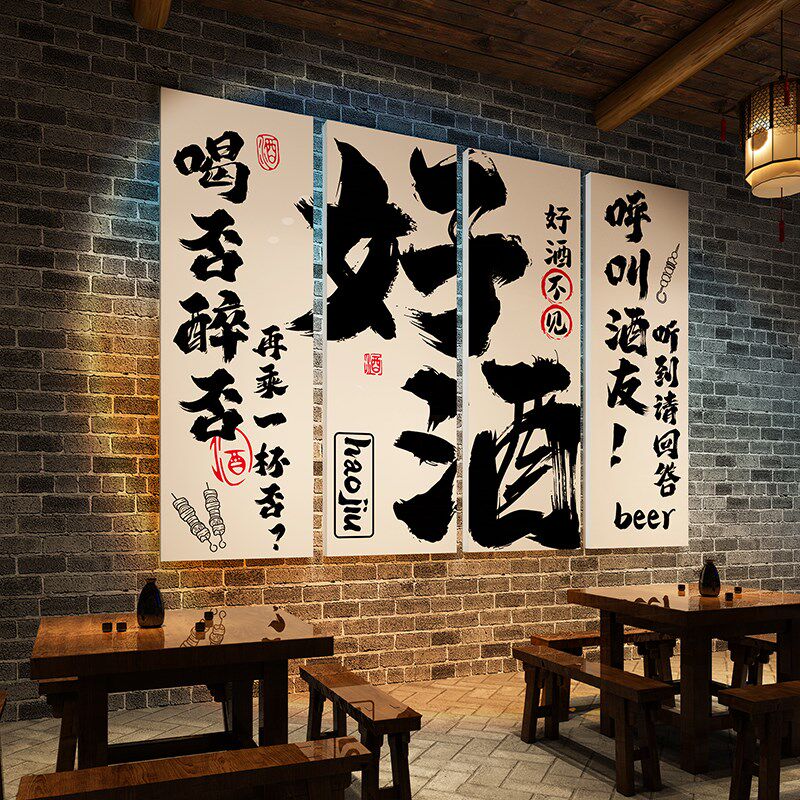 喝否醉否
酒
再乘一杯否？
酒
好酒
酒
haojiu
好酒不见
呼叫酒友！
听到请回答
beer